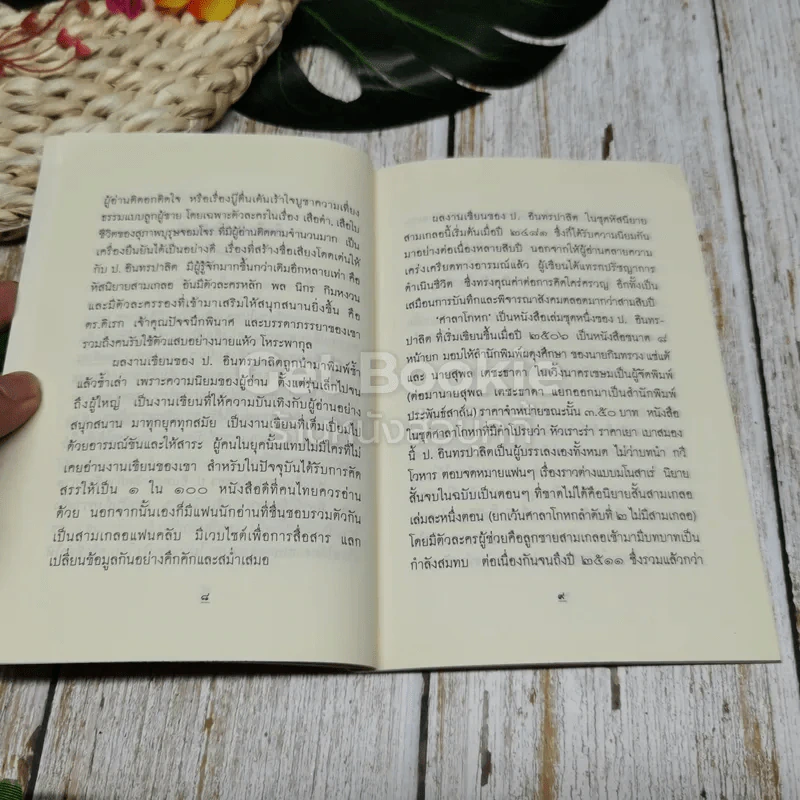 ผู้อ่านติดอกติดใจ หรือเรื่องบู๊ตื่นเต้นเร้าใจบูชาความเที่ยง
ธรรมแบบลูกผู้ชาย โดยเฉพาะตัวละครในเรื่อง เสือดำ, เสือใบ
ชีวิตของสุภาพบุรุษจอมโจร ที่มีผู้อ่านติดตามจำนวนมาก เป็น
เครื่องยืนยันได้เป็นอย่างดี เรื่องที่สร้างชื่อเสียงโดดเด่นให้
กับ ป. อินทรปาลิต มีผู้รู้จักมากขึ้นกว่าเดิมอีกหลายเท่า คือ
หัสนิยายสามเกลอ อันมีตัวละครหลัก พล นิกร กิมหงวน
และมีตัวละครรองที่เข้ามาเสริมให้สนุกสนานยิ่งขึ้น คือ
ดร.ดิเรก เจ้าคุณปัจจนึกพินาศ และบรรดาภรรยาของเขา
รวมถึงคนรับใช้ตัวแสบอย่างนายแห้ว โหระพากุล
ผลงานเขียนของ ป. อินทรปาลิตถูกนำมาพิมพ์ซ้ำ
แล้วซ้ำเล่า เพราะความนิยมของผู้อ่าน ตั้งแต่รุ่นเล็กไปจน
ถึงผู้ใหญ่ เป็นงานเขียนที่ให้ความบันเทิงกับผู้อ่านอย่าง
สนุกสนาน มาทุกยุคทุกสมัย เป็นงานเขียนที่เต็มเปี่ยมไป
ด้วยอารมณ์ขันและให้สาระ ผู้คนในยุคนั้นแทบไม่มีใครที่ไม่
เคยอ่านงานเขียนของเขา สำหรับในปัจจุบันได้รับการคัด
สรรให้เป็น ๑ ใน ๑๐๐ หนังสือดีที่คนไทยควรอ่าน
ด้วย นอกจากนั้นเองก็มีแฟนนักอ่านที่ชื่นชอบรวมตัวกัน
เป็นสามเกลอแฟนคลับ มีเวบไซต์เพื่อการสื่อสาร แลก
เปลี่ยนข้อมูลกันอย่างคึกคักและสม่ำเสมอ
๘
ผลงานเขียนของ ป. อินทรปาลิต ในชุดหัสนิยาย
สามเกลอนี้เริ่มต้นเมื่อปี ๒๔๘๑ ซึ่งก็ได้รับความนิยมกัน
มาอย่างต่อเนื่องหลายสิบปี นอกจากให้ผู้อ่านคลายความ
เคร่งเครียดทางอารมณ์แล้ว ผู้เขียนได้แทรกปรัชญาการ
ดำเนินชีวิต ซึ่งทรงคุณค่าต่อการคิดใคร่ครวญ อีกทั้งเป็น
เสมือนการบันทึกและพิจารณาสังคมตลอดมากว่าสามสิบปี
"ศาลาโกหก" เป็นหนังสือเล่มชุดหนึ่งของ ป. อินทร-
ปาลิต ที่เริ่มเขียนขึ้นเมื่อปี ๒๕๐๖ เป็นหนังสือขนาด ๘
หน้ายก มอบให้สำนักพิมพ์ผดุงศึกษา ของนายกิมทรวง แซ่แต้
และ นายสุพล เตชะธาดา ในเวิ้งนาครเขษมเป็นผู้จัดพิมพ์
(ต่อมานายสุพล เตชะธาดา แยกออกมาเป็นสำนักพิมพ์
ประพันธ์สาส์น) ราคาจำหน่ายขณะนั้น ๓.๕๐ บาท หนังสือ
ในชุดศาลาโกหกที่มีคำโปรยว่า หัวเราะร่า ราคาเยา เบาสมอง
นี้ ป. อินทรปาลิต เป็นผู้บรรเลงเองทั้งหมด ไม่ว่าบทนำ กวี
โวหาร ตอบจดหมายแฟนๆ เรื่องราวต่างแบบมโนสาเร่ นิยาย
สั้นจบในฉบับเป็นตอนๆ ที่ขาดไม่ได้คือนิยายสั้นสามเกลอ
เล่มละหนึ่งตอน (ยกเว้นศาลาโกหกลำดับที่ ๒ ไม่มีสามเกลอ)
โดยมีตัวละครผู้ช่วยคือลูกชายสามเกลอเข้ามามีบทบาทเป็น
กำลังสมทบ ต่อเนื่องกันจนถึงปี ๒๕๑๑ ซึ่งรวมแล้วกว่า
๙